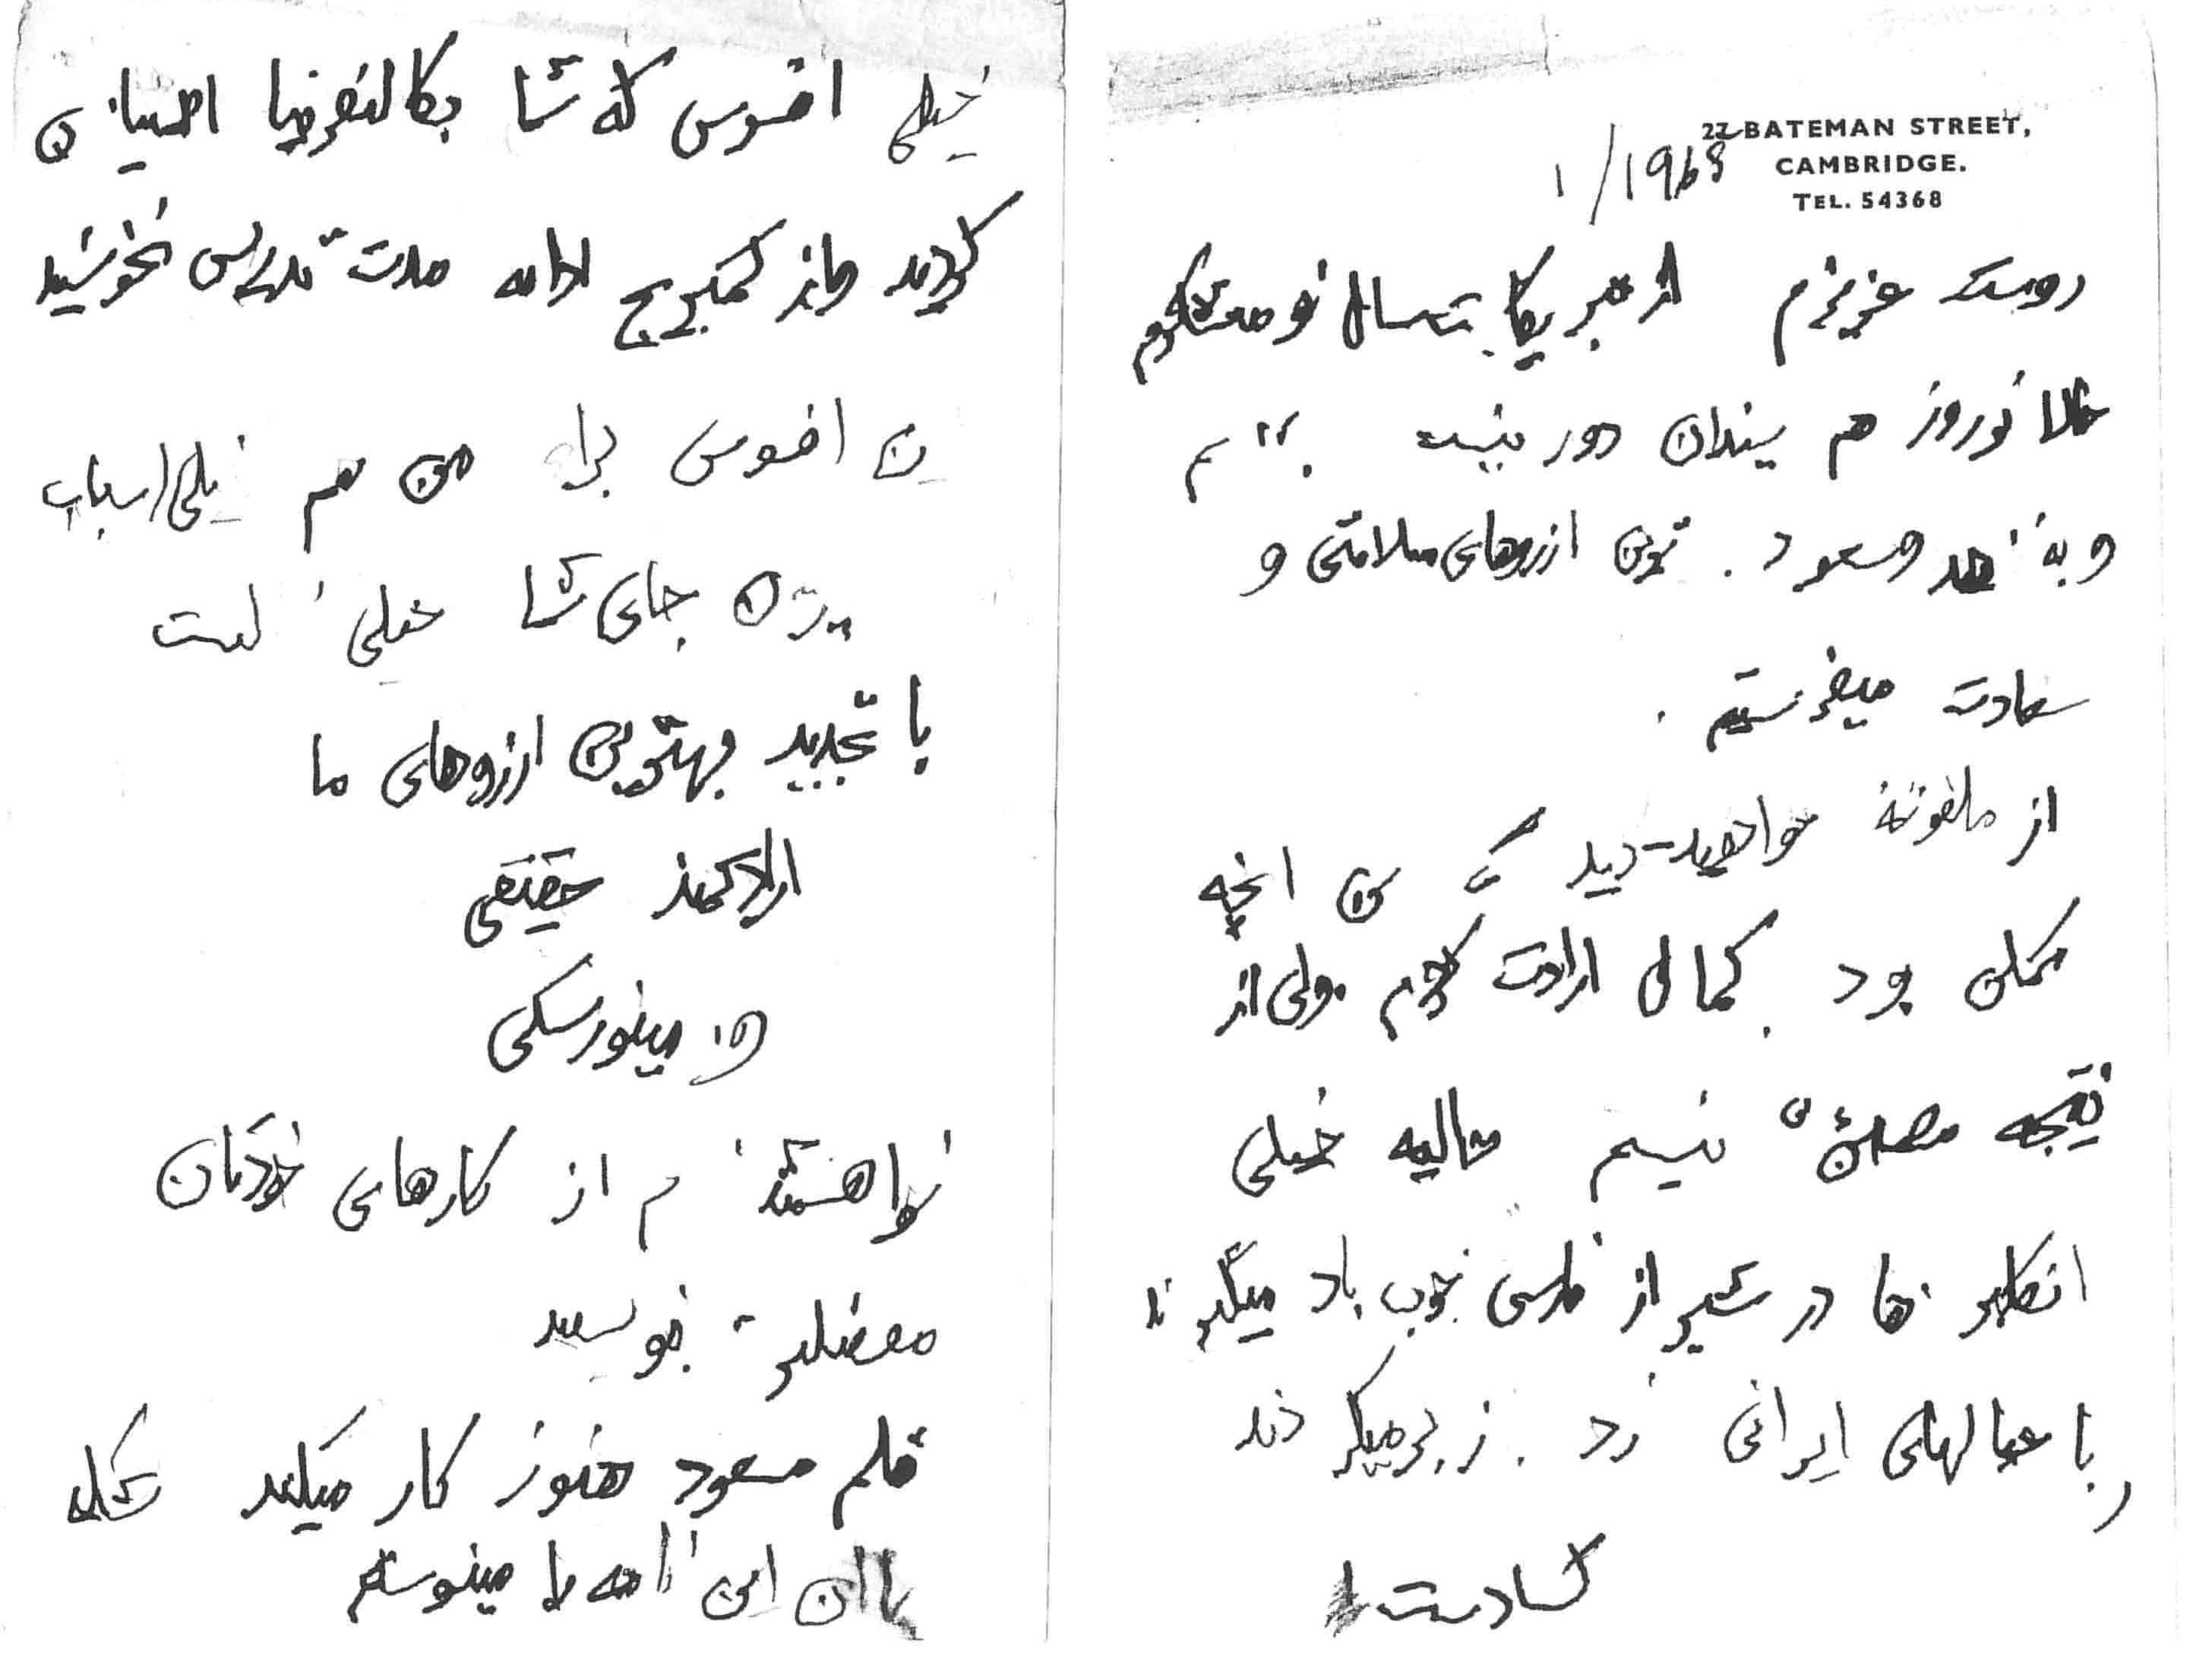 27 BATEMAN STREET,
CAMBRIDGE.
TEL. 54368
1/1963
دوست عزیزم از تبریک بسال نو متشکرم
حالا نوروز هم چندان دور نیست
و به مسعود. ترین ارزوهای سلامتی و
سعادت میفرستیم.
از ملفوفه خواهید دید که من انچه
ممکن بود بکمال ارادت کردم ولی از
نتیجه مطمئن نیستم حالیه خیلی
انگلیزها در شیراز فارسی خوب یاد میگیرند
با عیالهای ایرانی
خیلی افسوس که شما بکالیفرنیا
کردید و از کمبریج ادامه مدت تدریس نخوستید
این افسوس برای من هم خیلی اسباب
جای شما خیلی
با تجدید بهترین ارزوهای ما
ارادتمند حقیقی
و. مینورسکی
خواهشمندم از کارهای خودتان
مفصلتر بنویسید
قلم مسعود هنوز کار میکند
با ان این نامه را مینویسم